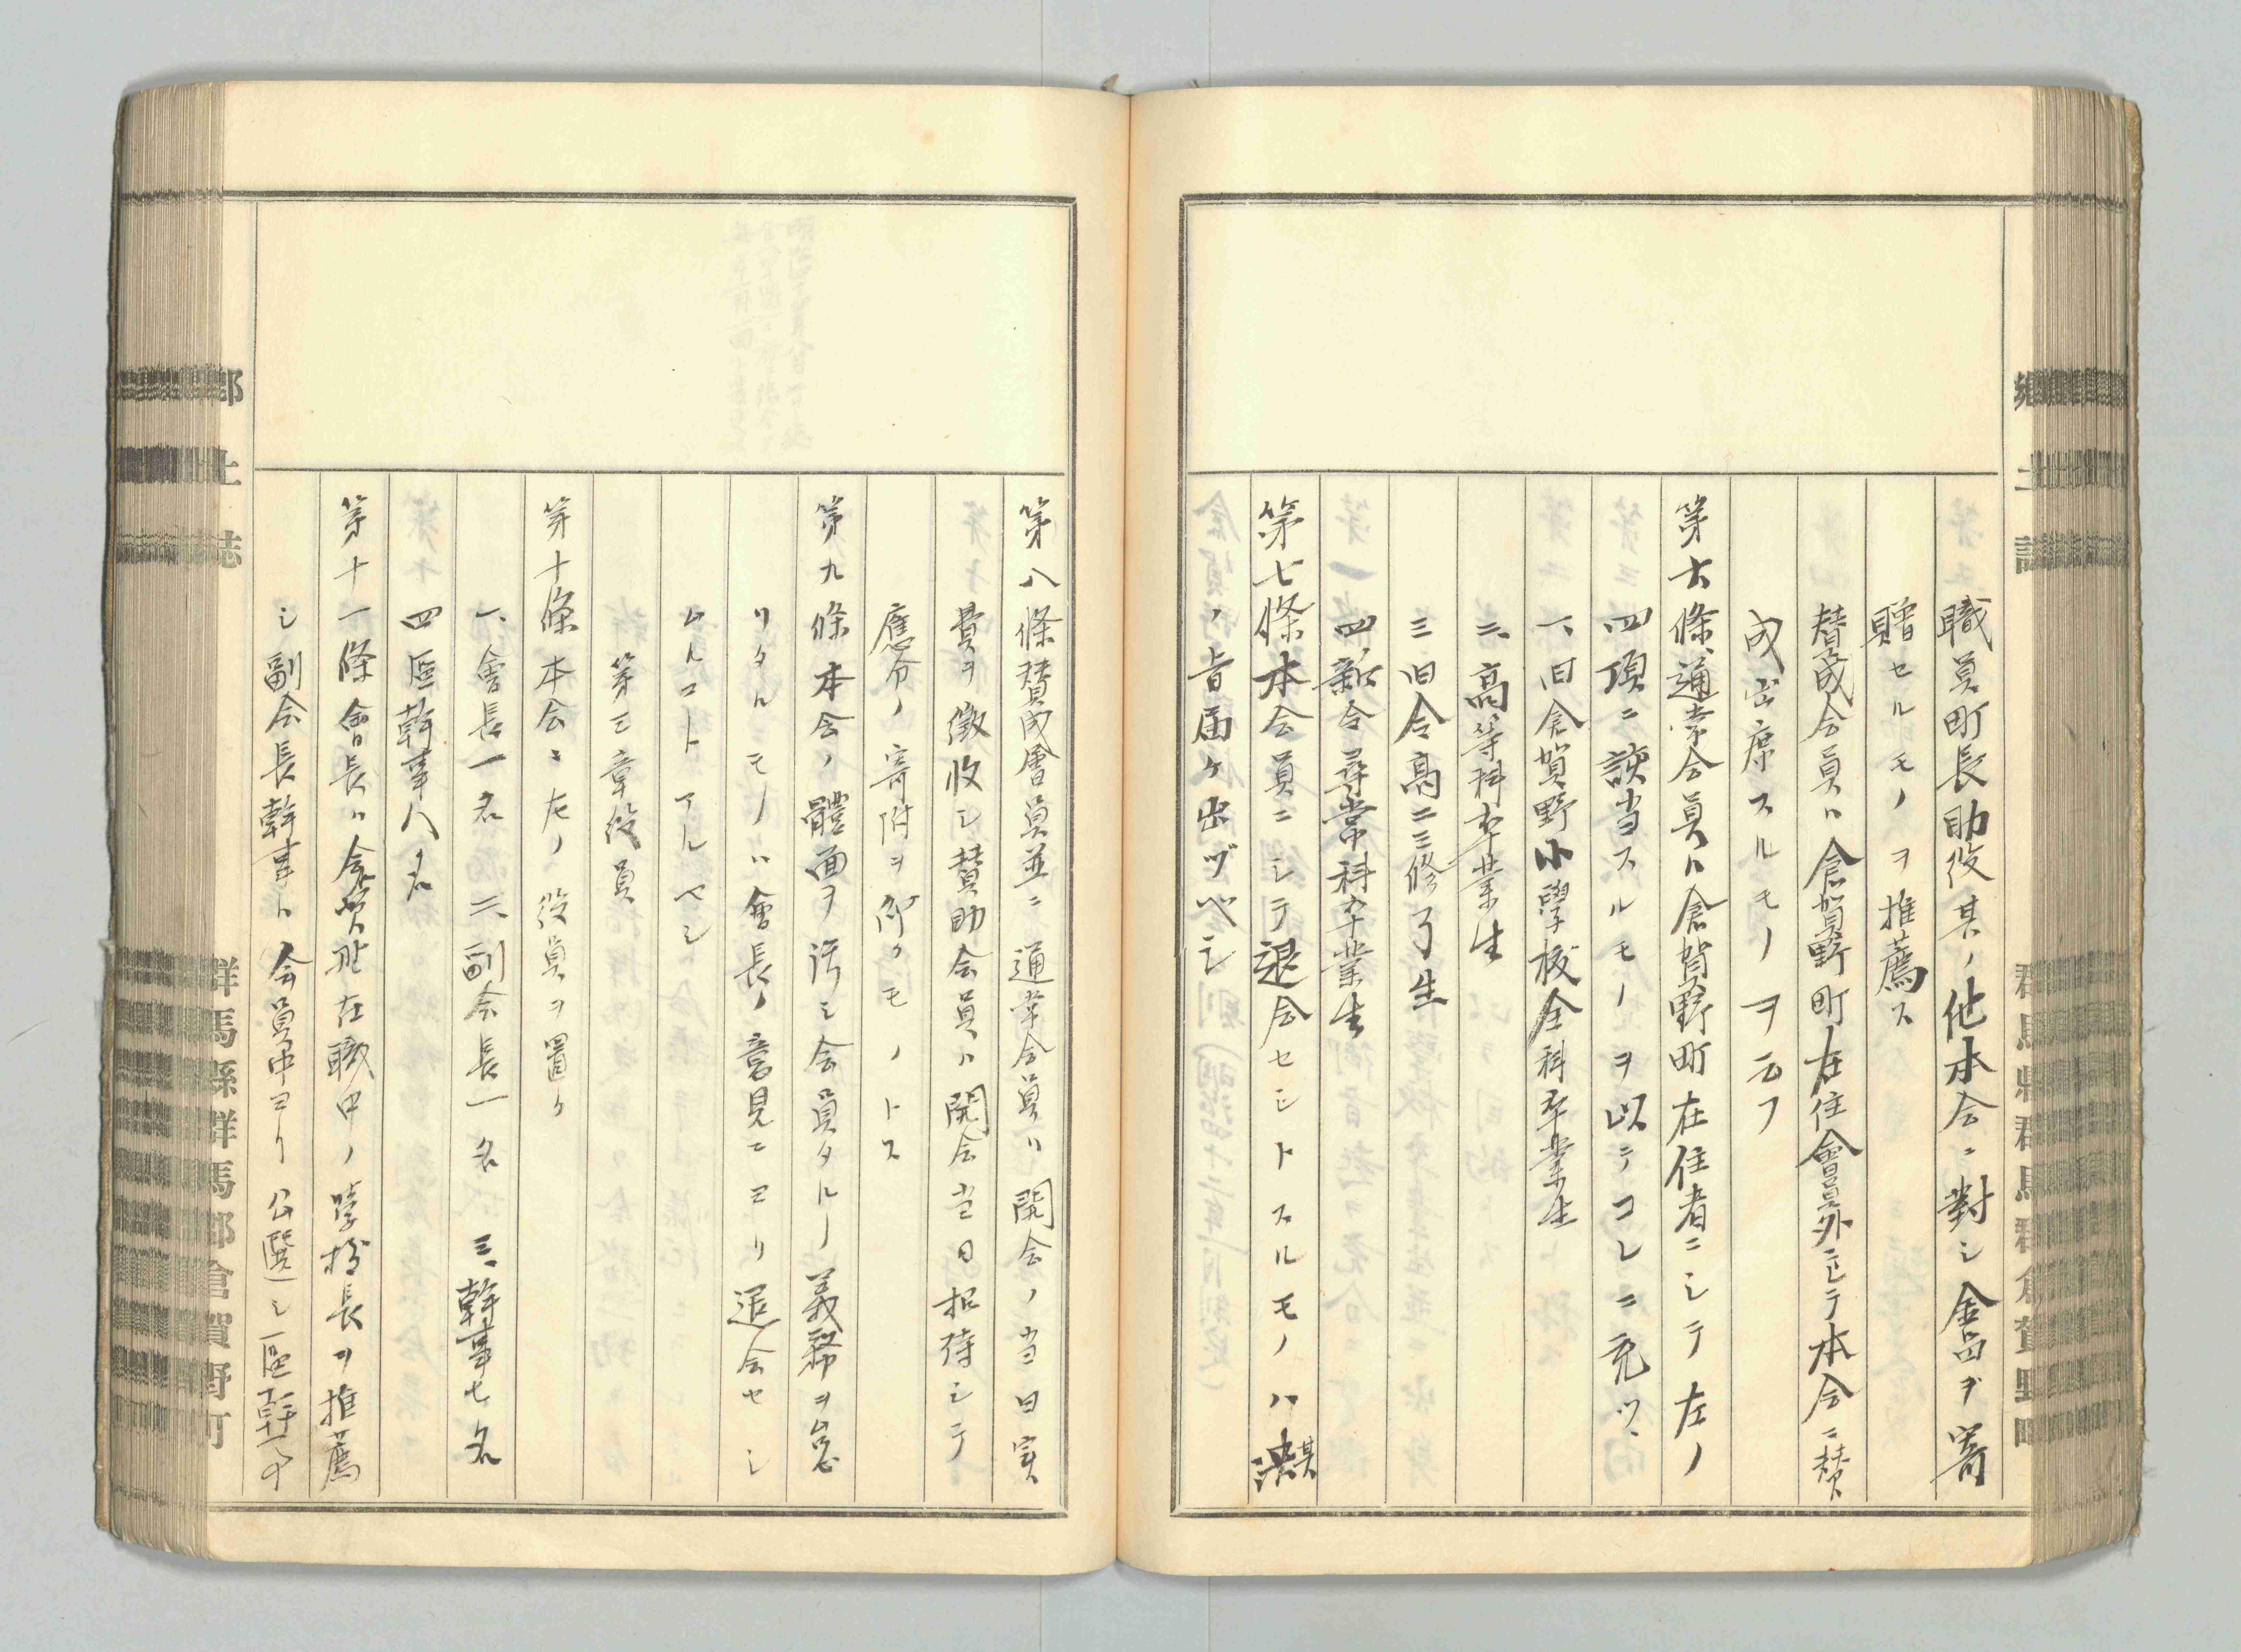 郷土誌
群馬縣群馬郡倉賀野町
職員町長助役其ノ他本会ニ對シ金品ヲ寄
贈セルモノヲ推薦ス
賛成会員ハ倉賀野町在住會員外ニシテ本会ニ賛
成出席スルモノヲ云フ
第六條通常会員ハ倉賀野町在住者ニシテ左ノ
四項ニ該当スルモノヲ以テコレニ充ツ、
一、旧倉賀野小學校全科卒業生
二、高等科卒業生
三旧令高二三修了生
四、新令尋常科卒業生
第七條本会員ニシテ退会セントスルモノハ其
ノ旨届ケ出ヅベシ
第八條賛成會員並ニ通常会員ハ開会ノ当日実
費ヲ徴收シ賛助会員ハ開会当日招待シテ
應分ノ寄附ヲ仰クモノトス
第九條本会ノ體面ヲ汚シ会員タルノ義務ヲ怠
リタルモノハ會長ノ意見ニヨリ退会セシ
ムルコトアルベシ
第三章役員
第十條本会ニ左ノ役員ヲ置ク
一、會長一名 二、副会長一名 三、幹事七名
四區幹事八名
第十一條會長ハ倉賀野在職中ノ學校長ヲ推薦
シ副会長幹事ハ会員中ヨリ公選シ區幹事
郷土誌
群馬縣群馬郡倉賀野町